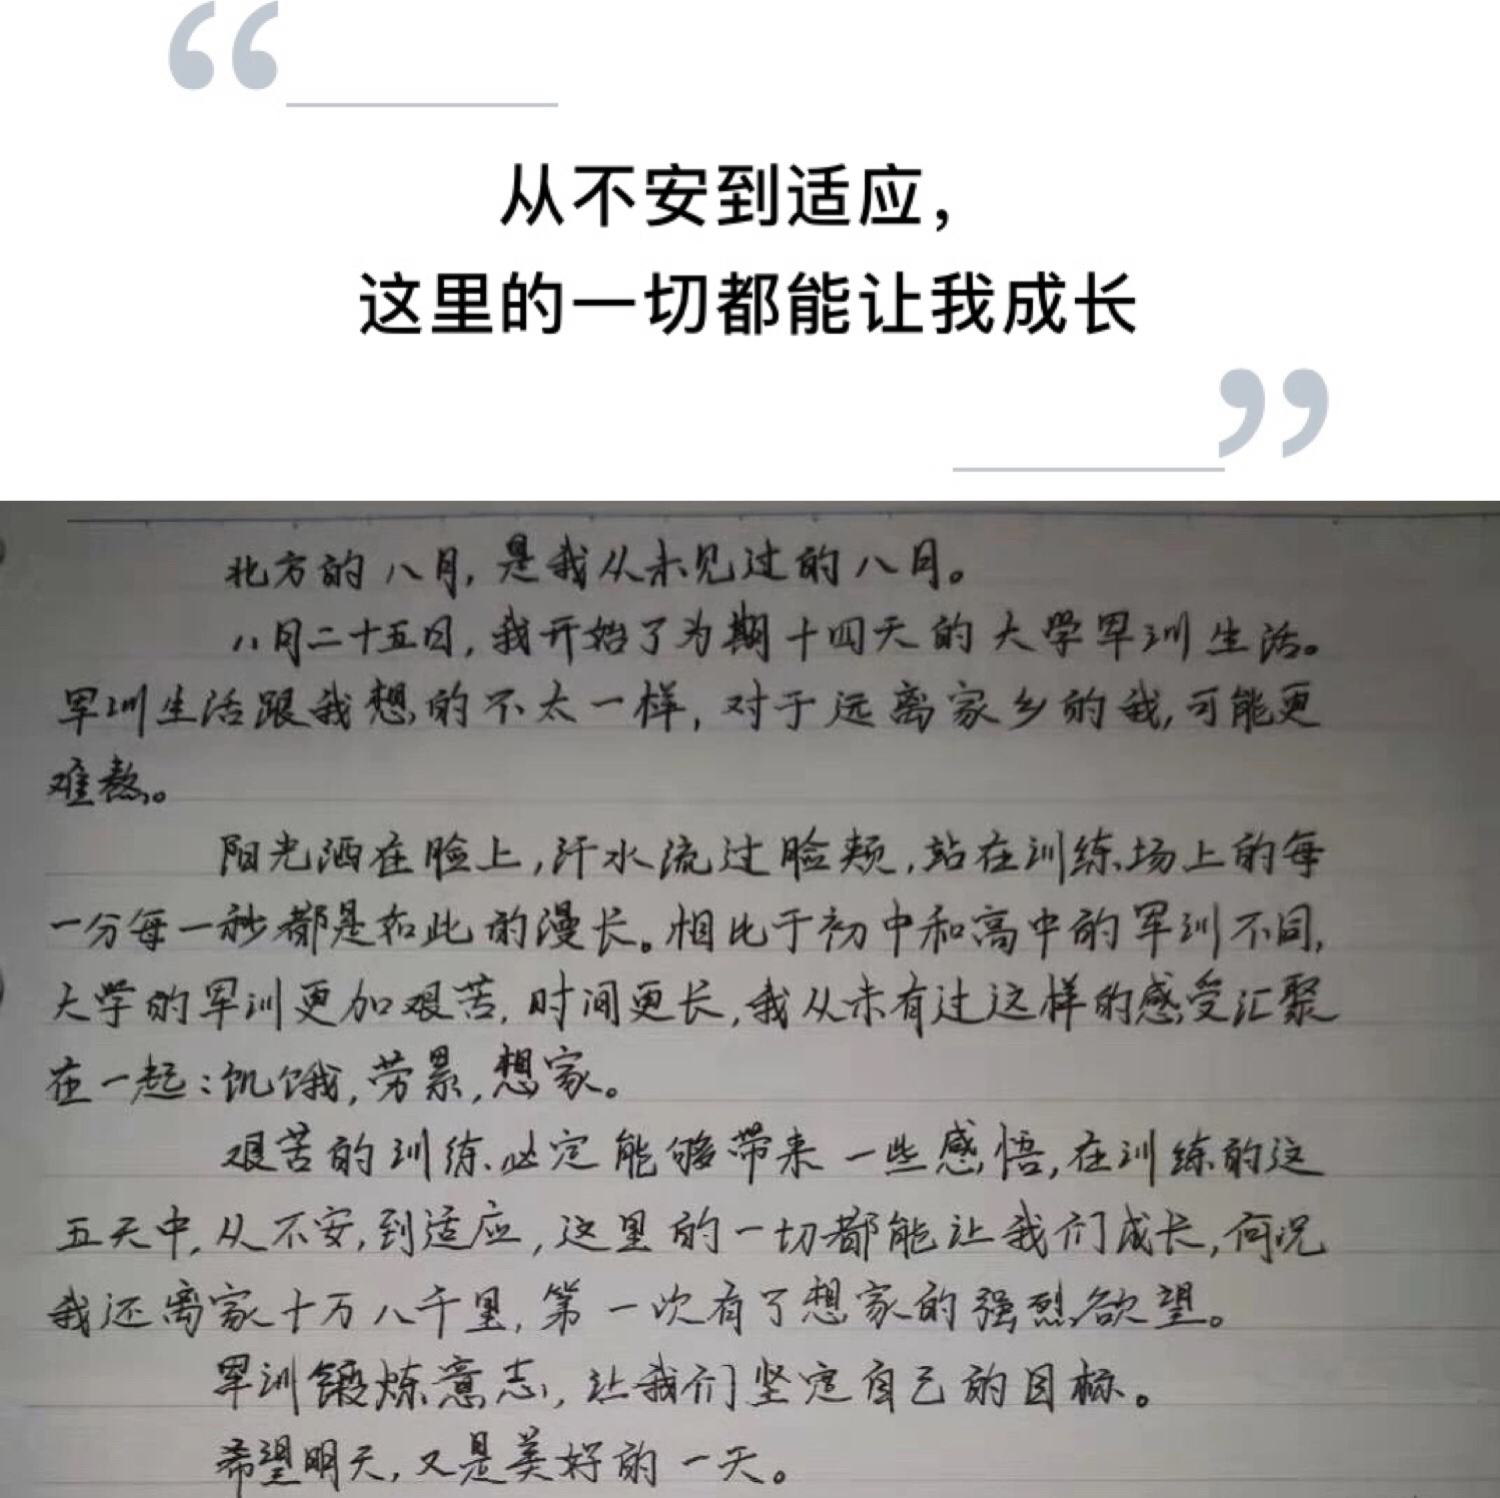 “
从不安到适应，
这里的一切都能让我成长
”
北方的八月，是我从未见过的八月。
八月二十五日，我开始了为期十四天的大学军训生活。
军训生活跟我想的不太一样，对于远离家乡的我，可能更
难熬。
阳光洒在脸上，汗水流过脸颊，站在训练场上的每
一分每一秒都是如此的漫长。相比于初中和高中的军训不同，
大学的军训更加艰苦，时间更长，我从未有过这样的感受汇聚
在一起：饥饿，劳累，想家。
艰苦的训练必定能够带来一些感悟，在训练的这
五天中，从不安，到适应，这里的一切都能让我们成长，何况
我还离家十万八千里，第一次有了想家的强烈欲望。
军训锻炼意志，让我们坚定自己的目标。
希望明天，又是美好的一天。